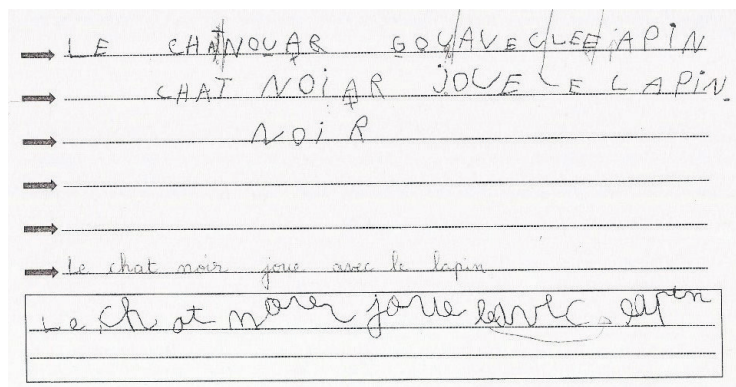 LE CHATNOUAR GOUAVECLEEAPIN
CHAT NOiAR JOUE LE LAPiN.
NOiR
Le chat noir joue avec le lapin
Le chat noir joue avec